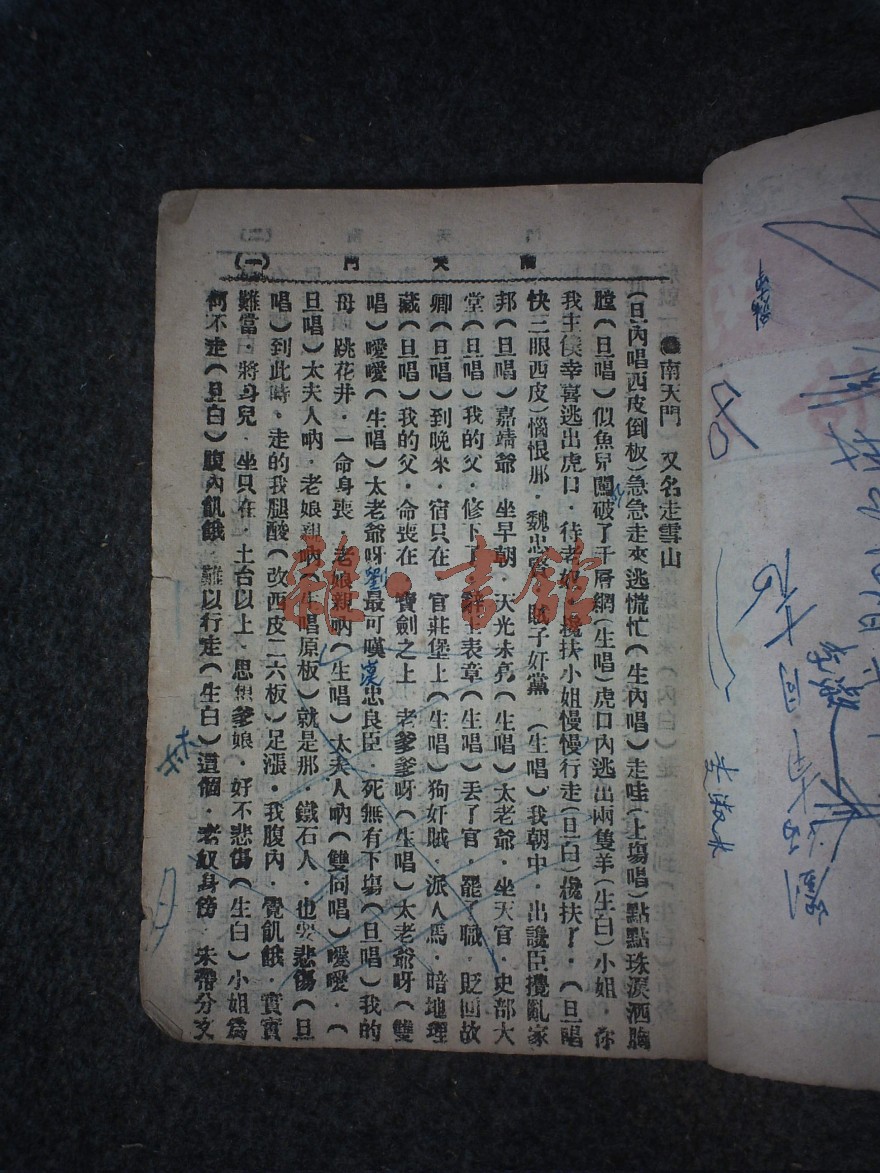 南天門
(一)
南天門 又名走雪山
(旦內唱西皮倒板)急急走來逃慌忙(生內唱)走哇(上塲唱)點點珠淚洒胸
膛(旦唱)似魚兒闖破了千層網(生唱)虎口內逃出兩隻羊(生白)小姐．你
我主僕幸喜逃出虎口．待老奴．攙扶小姐慢慢行走(旦白)攙扶了．(旦唱
快三眼西皮)惱恨那．魏忠賢．賊子奸黨 (生唱)我朝中．出讒臣攪亂家
邦(旦唱)嘉靖爺 坐早朝．天光未亮(生唱)太老爺．坐天官．吏部大
堂(旦唱)我的父．修下了．辭王表章(生唱)丢了官．罷了職．貶回故
卿(旦唱)到晚來．宿只在 官莊堡上(生唱)狗奸賊．派人馬．暗地埋
藏(旦唱)我的父．命喪在 寶劍之上 老爹爹呀(生唱)太老爺呀(雙
唱)噯噯(生唱)太老爺呀 最可嘆 忠良臣．死無有下塲(旦唱)我的
母 跳花井．一命身喪 老娘親吶(生唱)太夫人吶(雙同唱)噯噯．(
旦唱)太夫人吶．老娘親吶(生唱原板)就是那．鐵石人．也要悲傷(旦
唱)到此時．走的我腿酸(改西皮二六板)足漲．我腹內．覺飢餓．實實
難當．將身兒．坐只在．土台以上．思想爹娘．好不悲傷(生白)小姐爲
何不走(旦白)腹內飢餓 難以行走(生白)這個．老奴身傍．未帶分文
劉
雜·書館
李淑